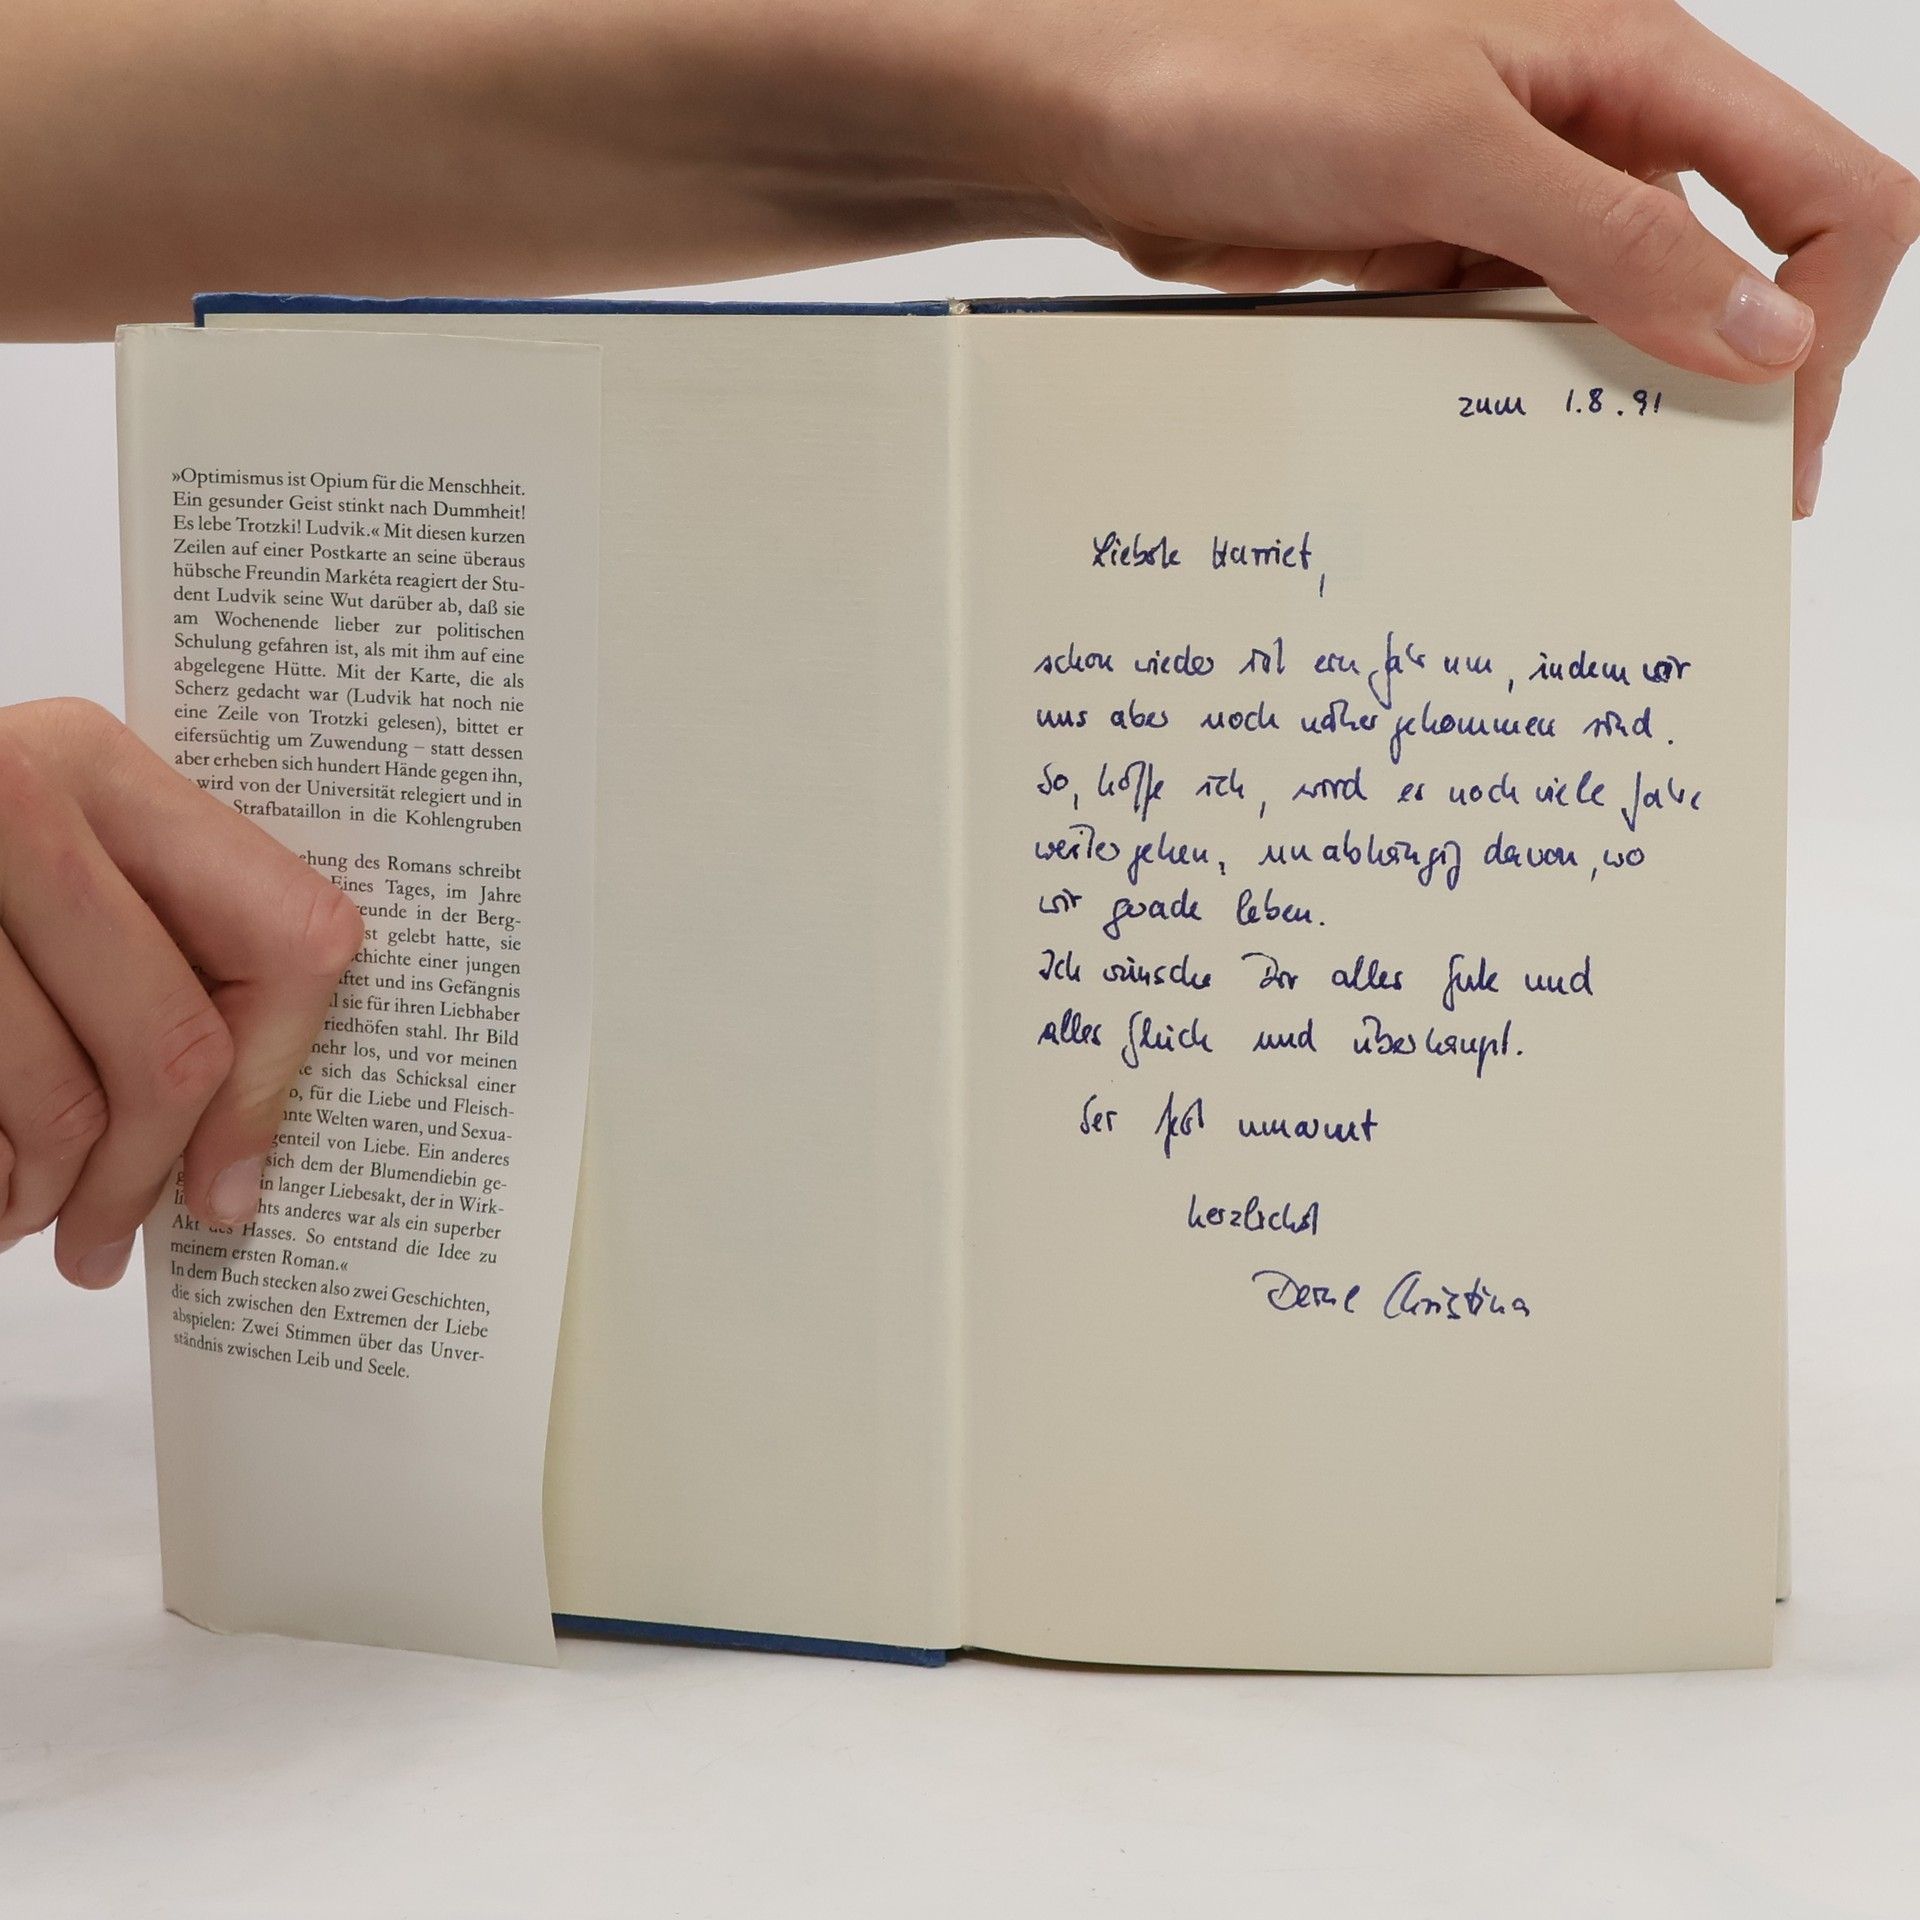 »Optimismus ist Opium für die Menschheit.
Ein gesunder Geist stinkt nach Dummheit!
Es lebe Trotzki! Ludvik.« Mit diesen kurzen
Zeilen auf einer Postkarte an seine überaus
hübsche Freundin Markéta reagiert der Stu-
dent Ludvik seine Wut darüber ab, daß sie
am Wochenende lieber zur politischen
Schulung gefahren ist, als mit ihm auf eine
abgelegene Hütte. Mit der Karte, die als
Scherz gedacht war (Ludvik hat noch nie
eine Zeile von Trotzki gelesen), bittet er
eifersüchtig um Zuwendung – statt dessen
aber erheben sich hundert Hände gegen ihn,
wird von der Universität relegiert und in
Strafbataillon in die Kohlengruben
des Romans schreibt
Eines Tages, im Jahre
in der Berg-
gelebt hatte, sie
einer jungen
und ins Gefängnis
sie für ihren Liebhaber
stahl. Ihr Bild
mehr los, und vor meinen
sich das Schicksal einer
für die Liebe und Fleisch-
Welten waren, und Sexua-
von Liebe. Ein anderes
sich dem der Blumendiebin ge-
langer Liebesakt, der in Wirk-
anderes war als ein superber
Akt des Hasses. So entstand die Idee zu
meinem ersten Roman.«
In dem Buch stecken also zwei Geschichten,
die sich zwischen den Extremen der Liebe
abspielen: Zwei Stimmen über das Unver-
ständnis zwischen Leib und Seele.
zum 1.8.91
Liebste Harriet,
schon wieder ist ein Jahr um, indem wir
uns aber noch näher gekommen sind.
So, hoffe ich, wird es noch viele Jahre
weitergehen, unabhängig davon, wo
wir gerade leben.
Ich wünsche Dir alles Gute und
alles Glück und überhaupt.
Sei fest umarmt
herzlichst
Deine Christina